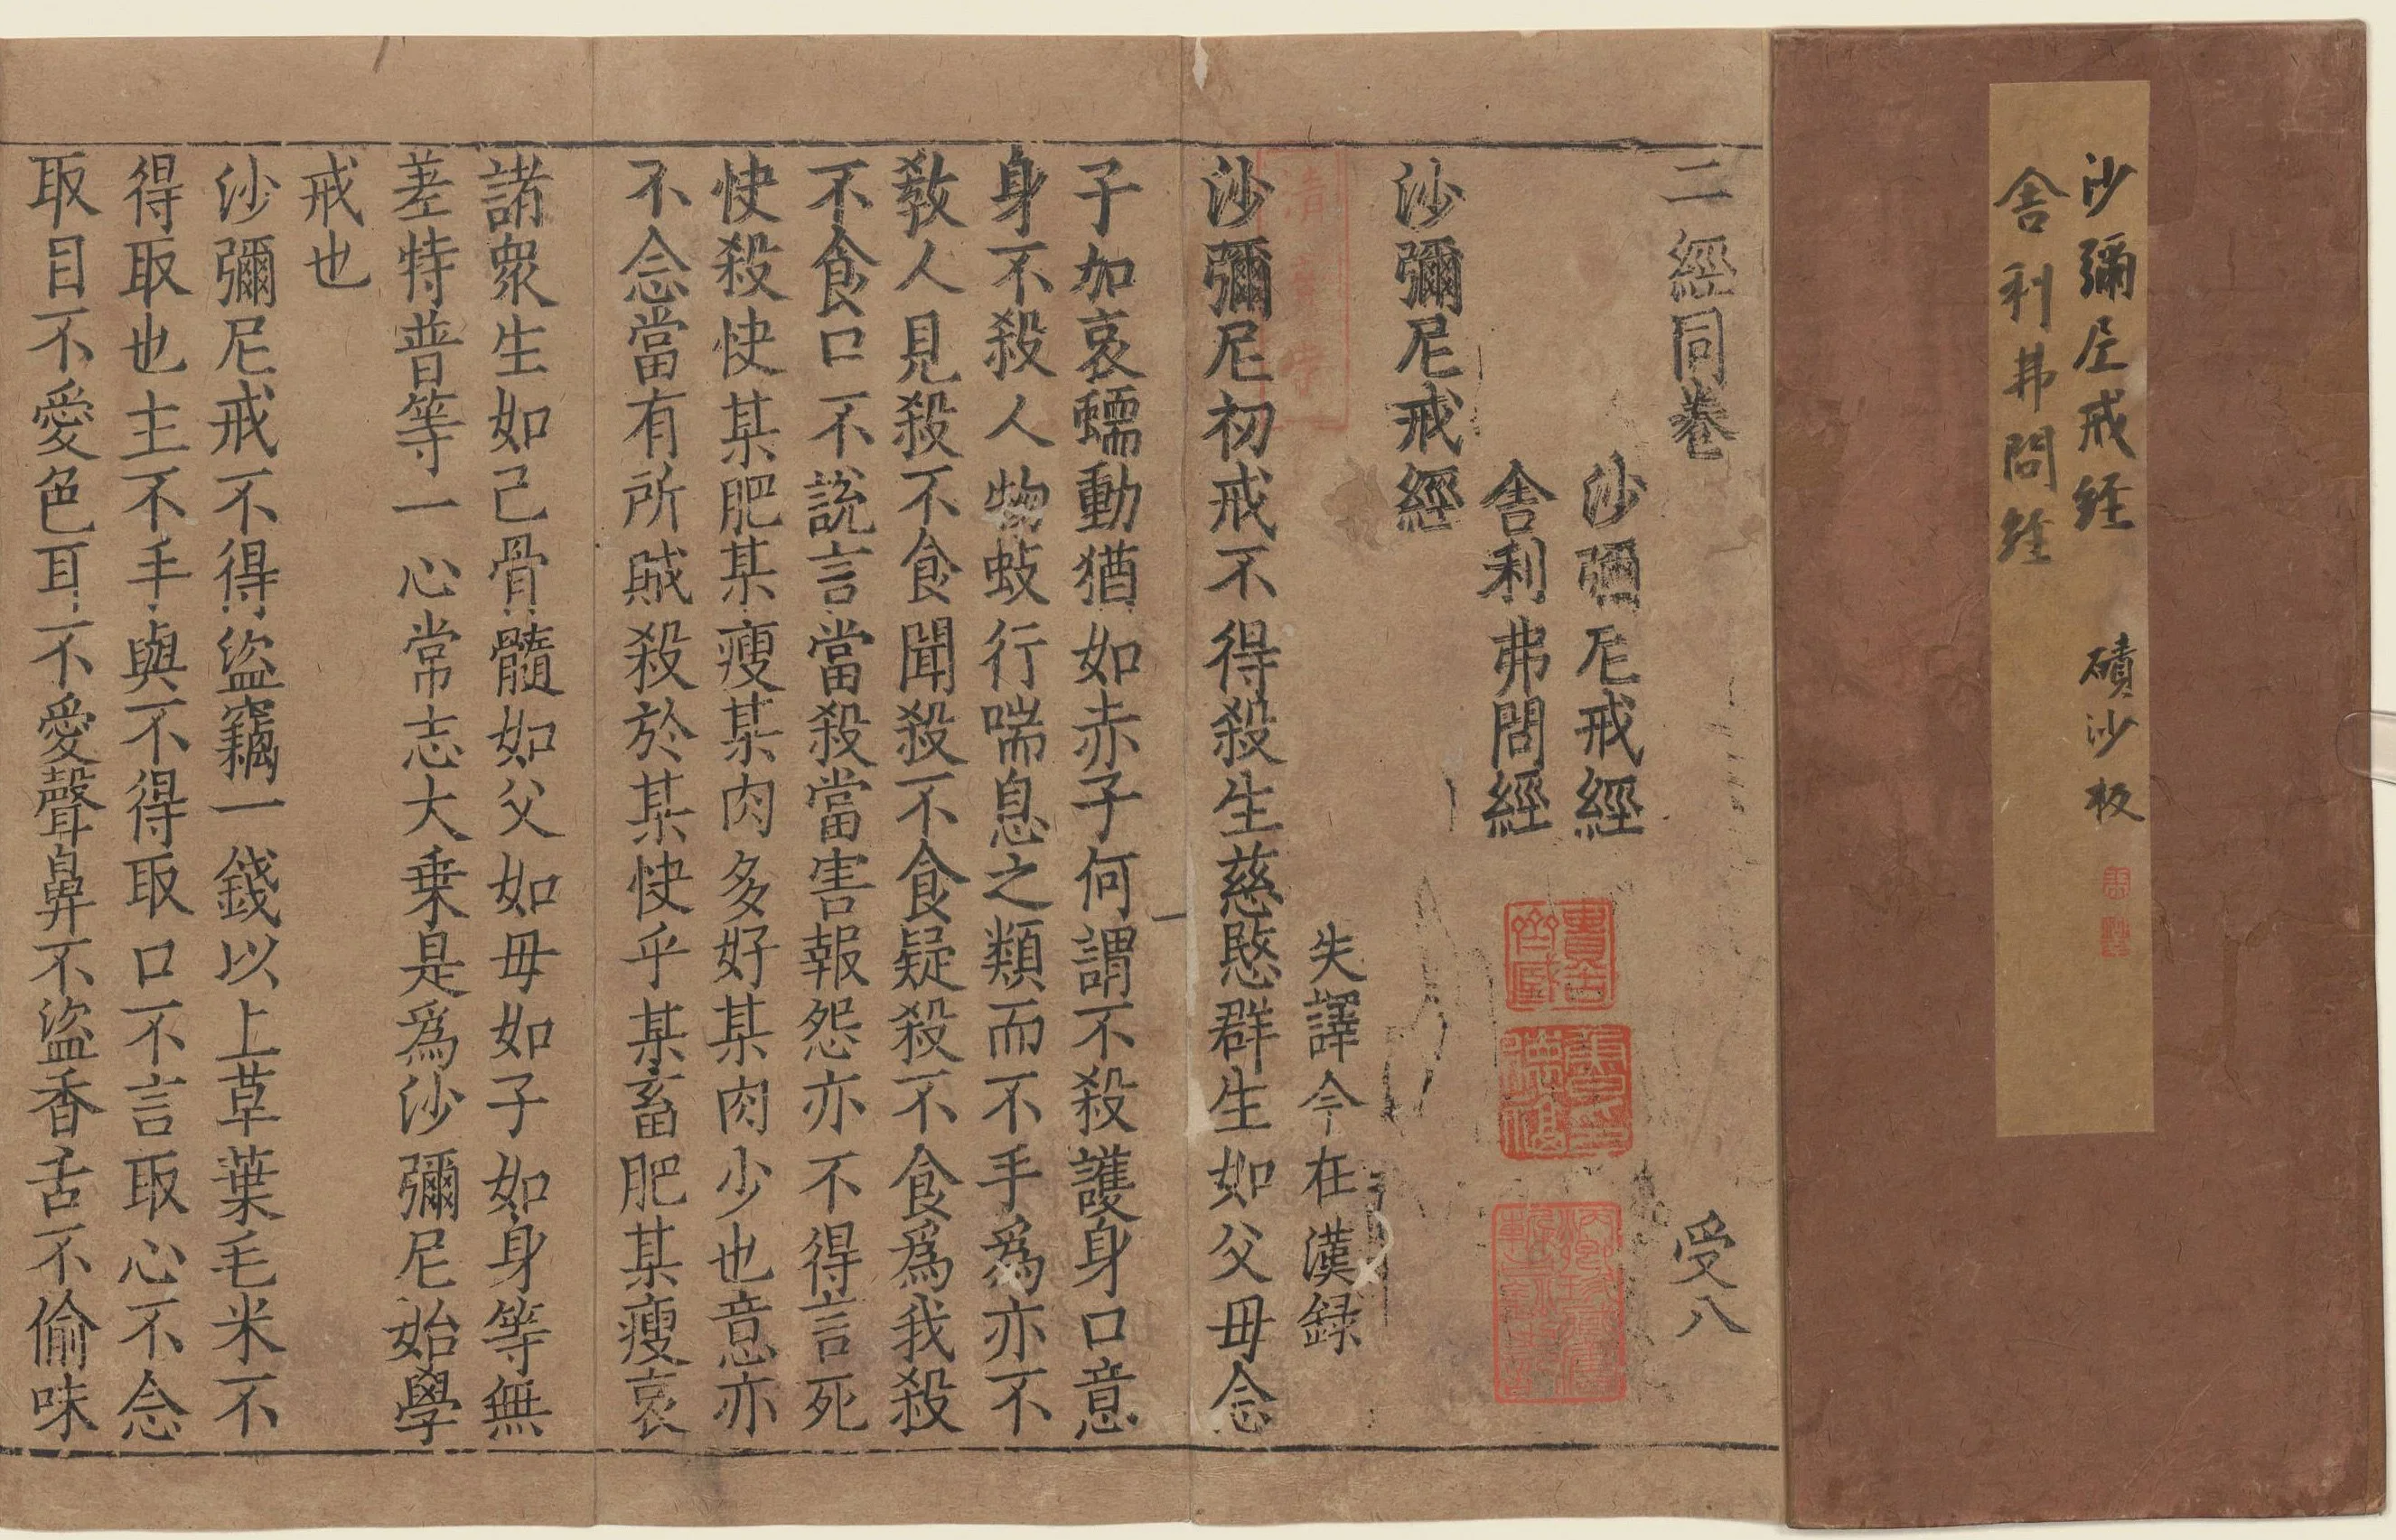 沙彌尼戒經 磧沙板
舍利弗問經
二經同卷 受八
沙彌尼戒經
舍利弗問經
沙彌尼戒經
失譯今在漢録
沙彌尼初戒不得殺生慈愍群生如父母念
子加哀蠕動猶如赤子何謂不殺護身口意
身不殺人物蚑行喘息之類而不手爲亦不
教人見殺不食聞殺不食疑殺不食爲我殺
不食口不説言當殺當害報怨亦不得言死
快殺快某肥某瘦某肉多好某肉少也意亦
不念當有所賊殺於某快乎某畜肥某瘦哀
諸衆生如己骨髓如父如母如子如身等無
差特普等一心常志大乗是爲沙彌尼始學
戒也
沙彌尼戒不得盜竊一錢以上草葉毛米不
得取也主不手與不得取口不言取心不念
取目不愛色耳不愛聲鼻不盜香舌不偷味